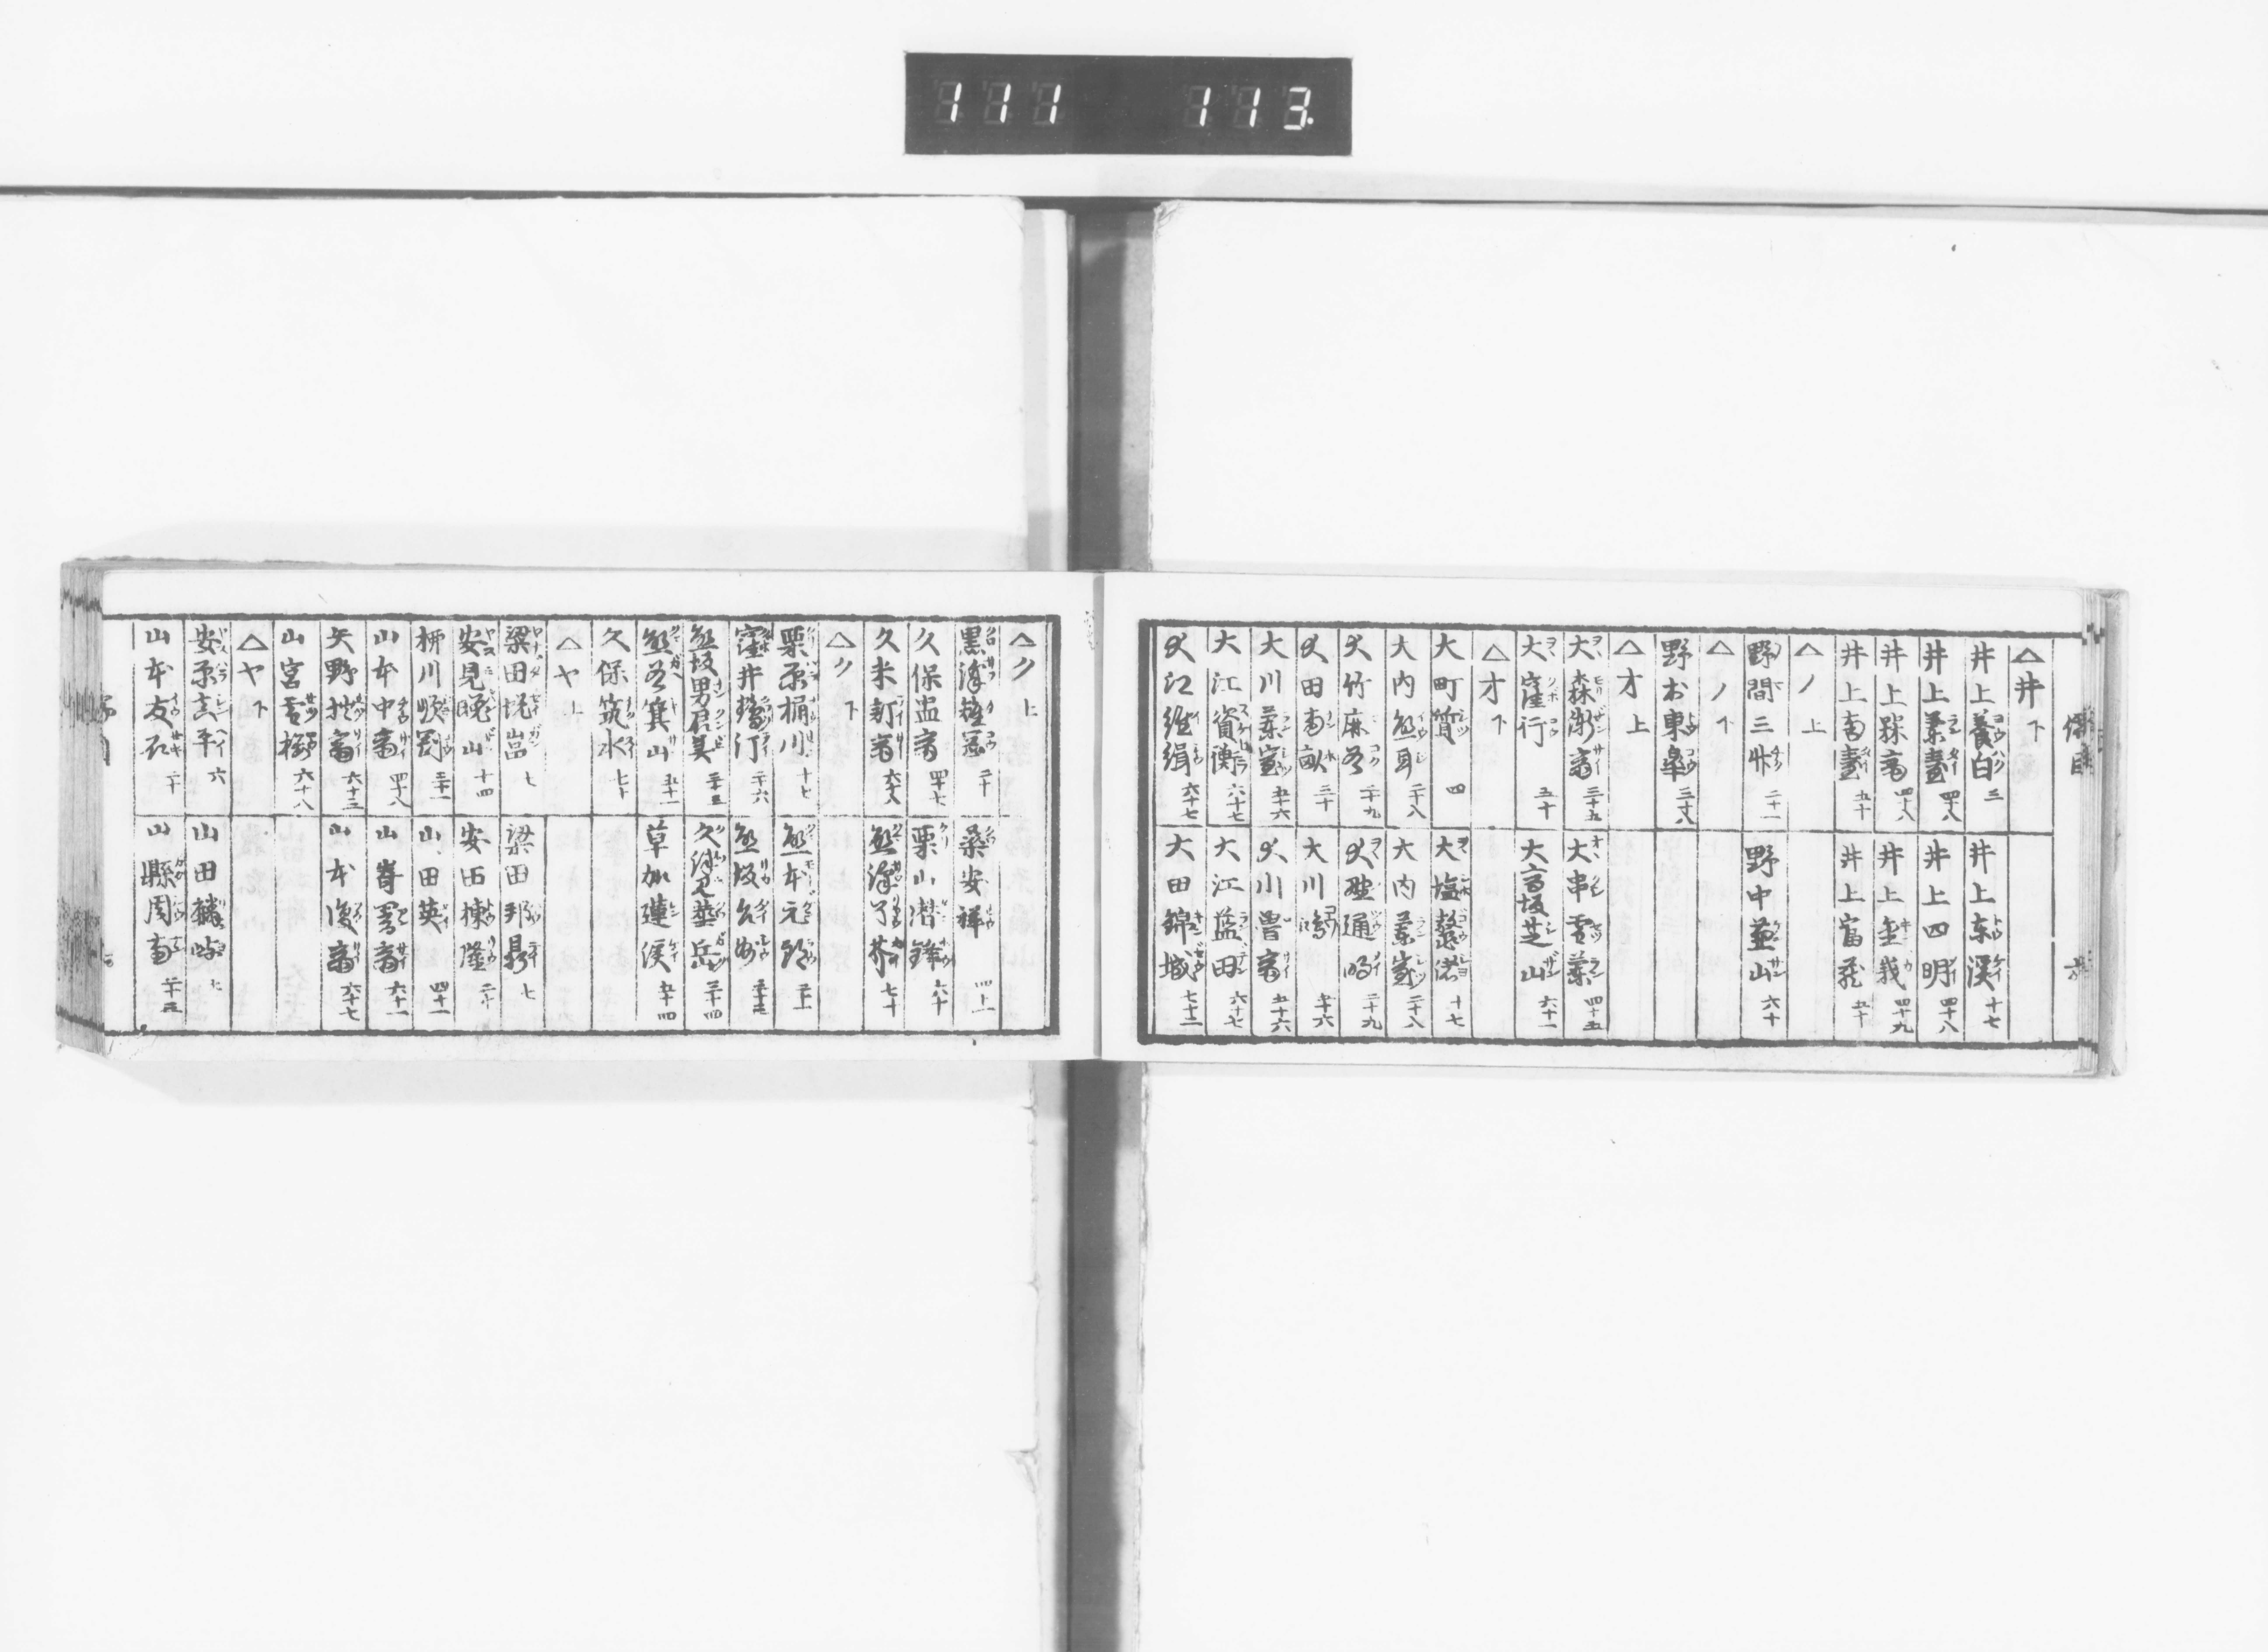 111 113.
儒目
△井 下
井上養白 三
井上東溪 十七
井上蘭臺 四十八
井上四明 四十八
井上 四十八
井上金峩 四十九
井上南臺 五十
井上富 五十
△ノ 上
野間三竹 二十一
野中兼山 六十
△ノ 下
野村東皐 三十八
△オ 上
大森漸斎 三十五
大串雪蘭 四十五
大窪行 五十
大高坂芝山 六十一
△オ 下
大町質 四
大塩鼇渚 十七
大内熊耳 二十八
大内蘭 二十八
大竹麻谷 二十九
大野通明 二十九
太田南畝 三十
大川 五十六
大川 五十六
大江資衡 六十七
大江藍田 六十七
大江維絹 六十七
大田錦城 七十二
△ク 上
黒澤雉岡 二十
桑安祥
久保盅斎 四十七
栗山潜鋒 六十
久米訂斎 六十八
熊澤了芥 七十
△ク 下
栗原桶川 十七
熊本元朗
窪井鶴汀 二十六
熊坂台州
熊坂男君美
久津見華岳 三十四
熊谷箕山 五十一
草加 五十四
久保筑水 七十
△ヤ 上
梁田蛻嵓 七
梁田邦 七
安見晩山 十四
安西 二十
柳川順剛
山田英 四十一
山本中斎 四十八
山 六十一
矢野拙斎 六十三
山本復斎 六十七
山宮雪樓 六十八
△ヤ 下
安原貞平 六
山田麟嶼 七
山本友石 二十
山縣周南 二十五